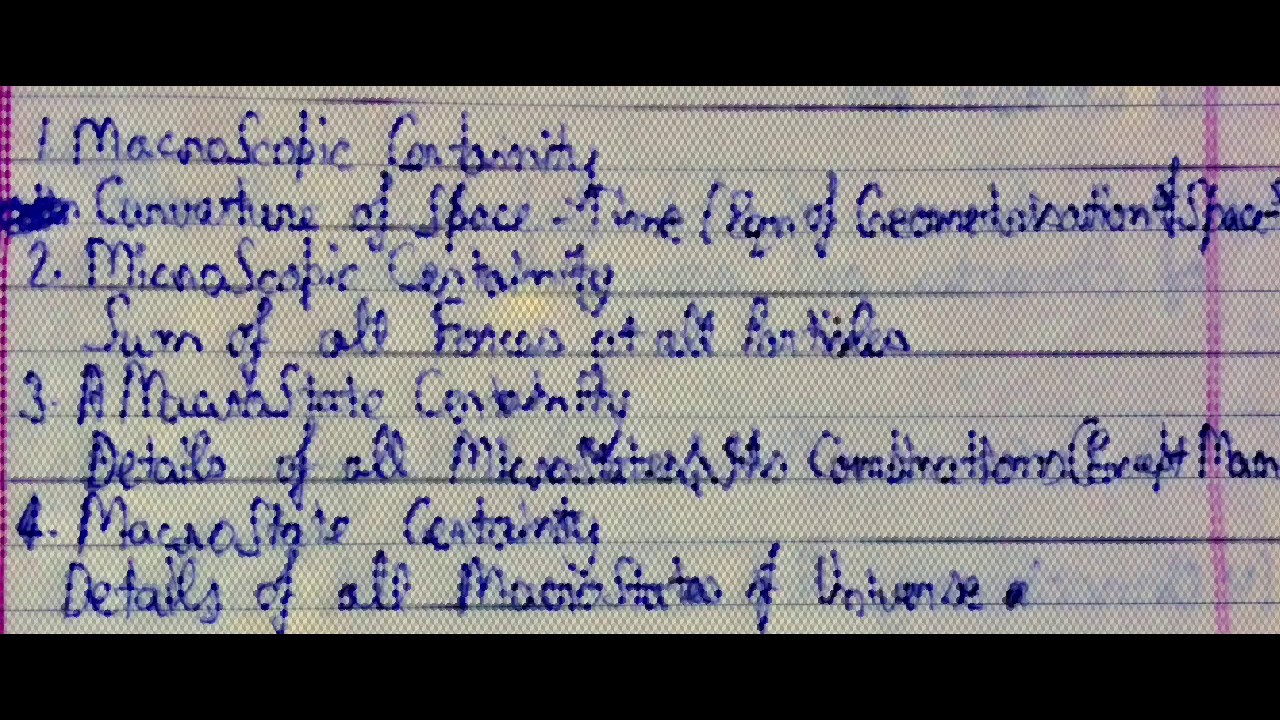 1. MacroScopic Certainity
Curvature of Space-Time (Eqn of Geometrisation of Space-
2. MicroScopic Certainity
Sum of all Forces at all Particles
3. A MacroState Certainity
Details of all MicroStates Combinations
4. MacroState Certainity
Details of all MacroStates of Universe